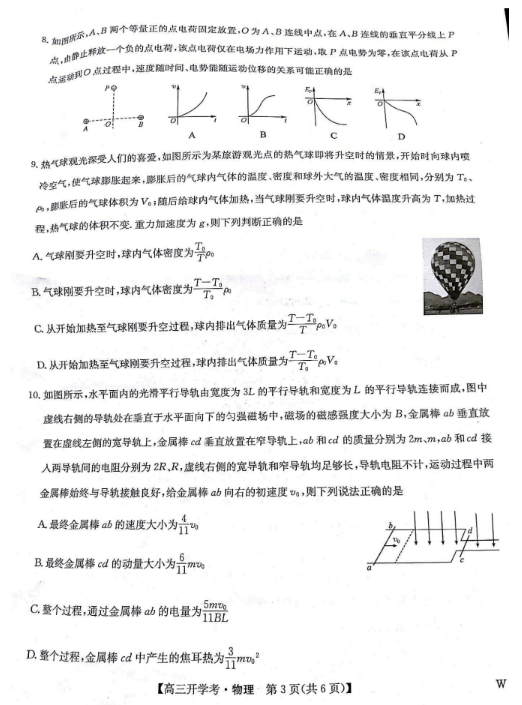 8. 如图所示,A、B 两个等量正的点电荷固定放置,O 为 A、B 连线中点,在 A、B 连线的垂直平分线上 P
点,由静止释放一个负的点电荷,该点电荷仅在电场力作用下运动,取 P 点电势为零,在该点电荷从 P
点运动到 O 点过程中,速度随时间、电势能随运动位移的关系可能正确的是
P
A O B
v
O t
A
v
O t
B
Eₚ
O x
C
Eₚ
O x
D
9. 热气球观光深受人们的喜爱,如图所示为某旅游观光点的热气球即将升空时的情景,开始时向球内喷
冷空气,使气球膨胀起来,膨胀后的气球内气体的温度、密度和球外大气的温度、密度相同,分别为 T₀、
ρ₀,膨胀后的气球体积为 V₀;随后给球内气体加热,当气球刚要升空时,球内气体温度升高为 T,加热过
程,热气球的体积不变.重力加速度为 g,则下列判断正确的是
A. 气球刚要升空时,球内气体密度为 T₀/T ρ₀
B. 气球刚要升空时,球内气体密度为 (T−T₀)/T₀ ρ₀
C. 从开始加热至气球刚要升空过程,球内排出气体质量为 (T−T₀)/T ρ₀V₀
D. 从开始加热至气球刚要升空过程,球内排出气体质量为 (T−T₀)/T₀ ρ₀V₀
10. 如图所示,水平面内的光滑平行导轨由宽度为 3L 的平行导轨和宽度为 L 的平行导轨连接而成,图中
虚线右侧的导轨处在垂直于水平面向下的匀强磁场中,磁场的磁感强度大小为 B,金属棒 ab 垂直放
置在虚线左侧的宽导轨上,金属棒 cd 垂直放置在窄导轨上,ab 和 cd 的质量分别为 2m、m,ab 和 cd 接
入两导轨间的电阻分别为 2R、R,虚线右侧的宽导轨和窄导轨均足够长,导轨电阻不计,运动过程中两
金属棒始终与导轨接触良好,给金属棒 ab 向右的初速度 v₀,则下列说法正确的是
A. 最终金属棒 ab 的速度大小为 4/11 v₀
B. 最终金属棒 cd 的动量大小为 6/11 mv₀
C. 整个过程,通过金属棒 ab 的电量为 5mv₀/11BL
D. 整个过程,金属棒 cd 中产生的焦耳热为 3/11 mv₀²
b
v₀
a
d
c
【高三开学考·物理 第 3 页(共 6 页)】
W